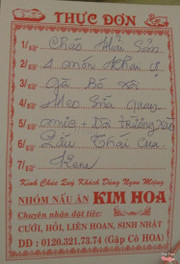 THỰC ĐƠN
1/ Cháo Hải Sản
2/ 4 món khai vị
3/ Gà Bó Xôi
4/ Heo Sữa quay
5/
6/ Lẩu Thái Cua
7/ Kem
Kính Chúc Quý Khách Dùng Ngon Miệng
NHÓM NẤU ĂN KIM HOA
Chuyên nhận đặt tiệc:
CƯỚI, HỎI, LIÊN HOAN, SINH NHẬT
DĐ : 0120.321.73.74 (Gặp Cô HOA)